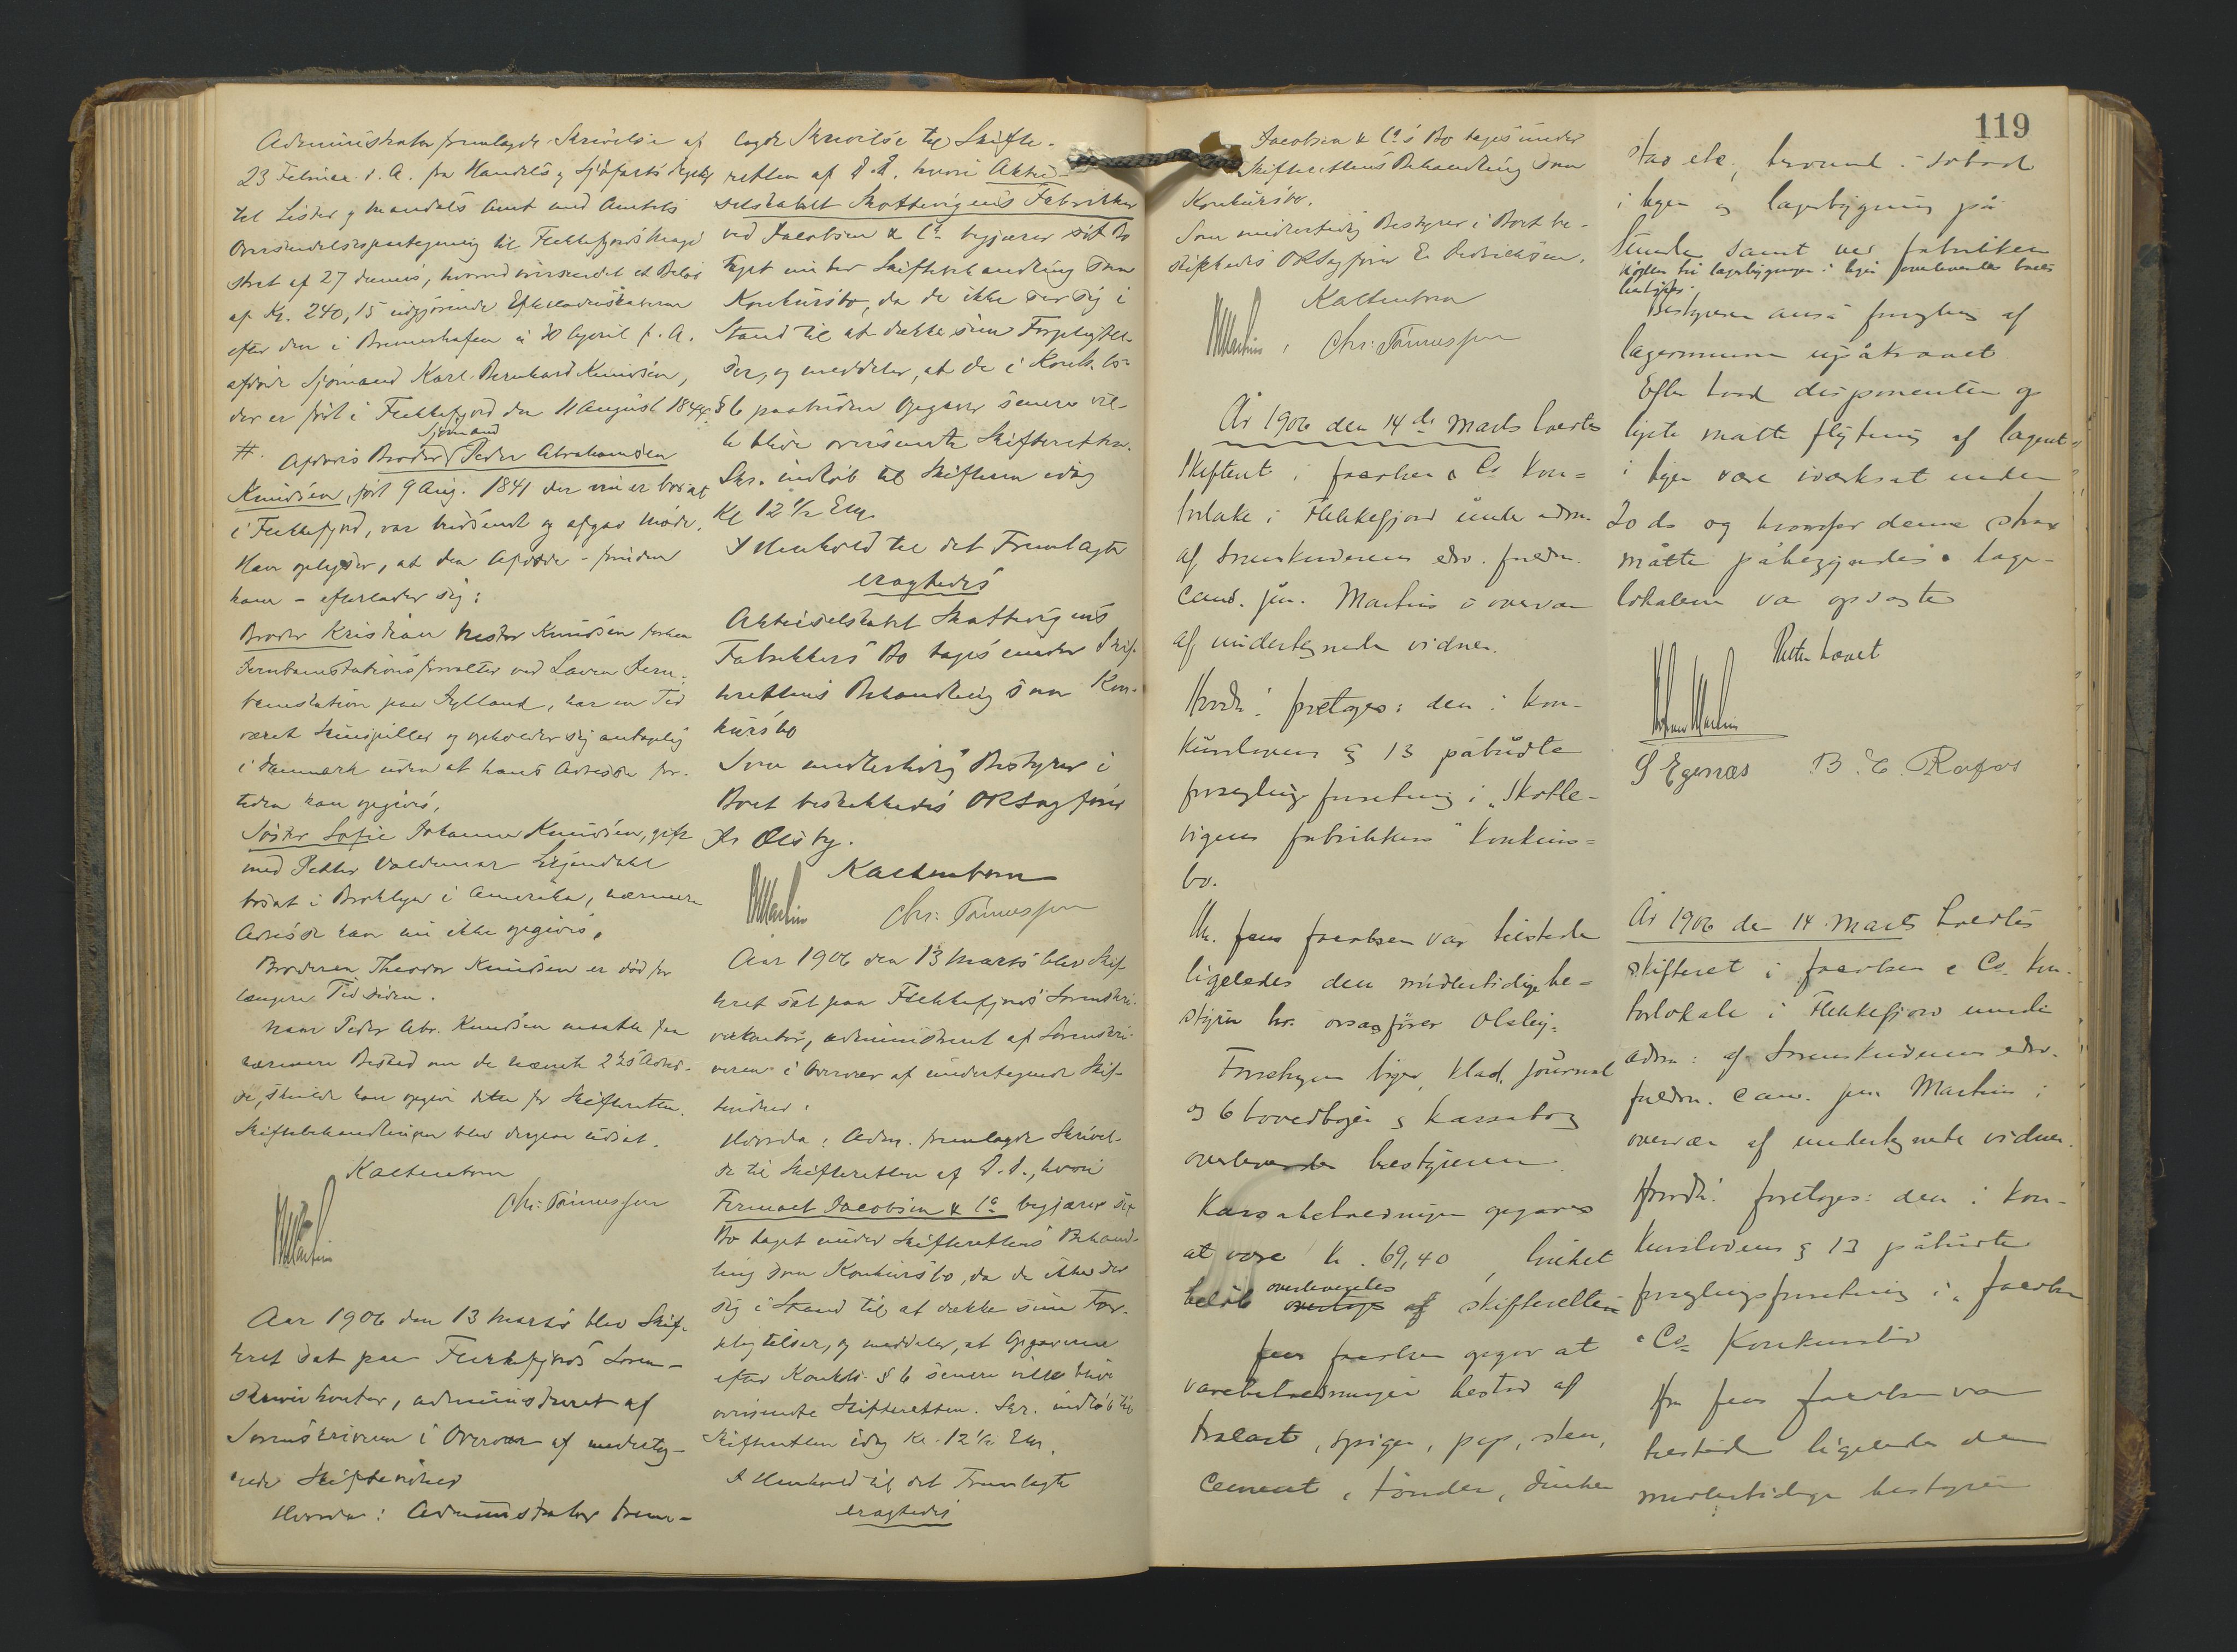 Administrator fremlagde Skrivelse af
23 Februar d. A. fra Handels og Sjøfarts Depts
til Lister og Mandals Amt med Amtets
Oversendelsespaategning til Flekkefjords Magi
strat af 27 dennes, hvorved oversendt et Beløb
af Kr. 240,15 udgjørende Efterladenskaberne
efter den i Bremerhafen 30 April f. A.
afdøde Sjømand Karl Bernhard Knudsen,
der er født i Flekkefjord den 11 August 1844.
Sjømand
#. Afdødes Broder Peder Abrahamsen
Knudsen, født 9 Aug. 1841 der nu er bosat
i Flekkefjord, var indkaldt og afgav Møde.
Han oplyser, at den Afdøde - foruden
ham - efterlader sig:
Broder Kristian Knudsen forhen
Jernbanestationsforvalter ved Laven Jern-
banestation paa Jylland, har en Tid
været Skuespiller og opholder sig antagelig
i Danmark uden at hans Adresse for-
tiden kan opgives.
Søster Sofie Johanne Knudsen, gift
med Petter Valdemar
bosat i Brooklyn i Amerika, nærmere
Adresse kan nu ikke opgives.
Broderen Theodor Knudsen er død for
længere Tid siden.
Naar Peder Abr. Knudsen maatte faa
nærmere Besked om de nævnte 2 Adres-
se, skulde han opgive dette for Skifteretten.
Skiftebehandlingen blev derpaa udsat.
Kaltenborn
Chr: Tønnessen
Martin
Aar 1906 den 13 Marts blev Skif-
teret sat paa Flekkefjords Soren-
skriverkontor, administreret af
Sorenskriveren i Overvær af underteg-
nede Skiftevidner
Hvorda: Administrator frem-
lagde Skrivelse til Skifte-
retten af d. D. hvori Aktie-
selskabet Skottevigens Fabrikker
ved Jacobsen & Co begjærer sit Bo
taget under Skiftebehandling som
Konkursbo, da de ikke ser sig i
Stand til at dække sine Forpligtel-
ser, og meddeler, at de i Konk. lo-
§ 6 paabudne Opgaver senere vil-
le blive oversendte Skifteretten.
Skr. indløb til Skifteren idag
Kl 12 1/2 Em.
I Henhold til det Fremlagte
eragtedes
Aktieselskabet Skottevigens
Fabrikkers Bo tages under Skif-
terettens Behandling som Kon-
kursbo
Som midlertidig Bestyrer i
Boet beskikkedes ORSagfører
Olsby.
Kaltenborn
Martin Chr: Tønnessen
Aar 1906 den 13 Marts blev Skif-
teret sat paa Flekkefjords Sorenskri-
verkontor, administreret af Sorenskri-
veren i Overvær af undertegnede Skif-
tevidner.
Hvorda: Adm. fremlagde Skrivel-
se til Skifteretten af d. D., hvori
Firmaet Jacobsen & Co begjærer sit
Bo taget under Skifterettens Behand-
ling som Konkursbo, da de ikke ser
sig i Stand til at dække sine For-
pligtelser, og meddeler, at Opgaverne
efter Konkl. § 6 senere ville blive
oversendte Skifteretten. Skr. indløb til
Skifteretten idag Kl. 12 1/2 Em.
I Henhold til det Fremlagte
eragtedes
119
Jacobsen & Co's Bo tages under
Skifterettens Behandling som
Konkursbo.
Som midlertidig Bestyrer i Boet be-
skikkedes ORSagfører
Kaltenborn
Martin, Chr: Tønnessen
År 1906 den 14de Marts holdtes
skifteret i Jacobsen & Co Kon=
torlokale i Flekkefjord under adm.
af Sorenskriveren edsv. fuldm.
cand. jur. Martin i overvær
af undertegnede vidner.
Hvorda: foretoges: den i Kon-
kurslovens § 13 påbudte
forseglingsforretning i "Skotte-
vigens fabrikkers" konkurs=
bo.
Hr. Jens Jacobsen var tilstede
ligeledes den midlertidige be=
styrer hr. orsagfører Olsby.
Forretningens bøger, Klad, Journal
og 6 hovedbøger og Kassabog
overleveredes bestyreren
Kassabeholdningen opgaves
at være Kr. 69,40, hvilket
overleveredes
beløb af skifteretten
Jens Jacobsen opgav at
varebeholdningen bestod af
trælast, spiger, pap, sten,
cement, tønder,
stav etc.,
i byen og lagerbygning på
samt ved fabrikken
Nøglen til lagerbygningen i byen overleveredes boets
bestyrer.
Bestyreren anså forsegling af
lagerrummene upåkrævet.
Efter hvad disponenten op
lyste måtte flytning af lageret
i byen være iværksat inden
20 ds og hvorfor denne strax
måtte påbegyndes. Lager-
lokalerne var opsagte
Martin
S Egenæs B. E. Rafos
År 1906 den 14 Marts holdtes
skifteret i Jacobsen & Co. Kon-
torlokale i Flekkefjord under
adm: af Sorenskriverens edsv.
fuldm. cand. jur. Martin i
overvær af undertegnede vidner.
Hvorda: foretoges: den i Kon-
kurslovens § 13 påbudte
forseglingsforretning i "Jacobsen
& Co Konkursbo
Hr Jens Jacobsen var
tilstede ligeledes den
midlertidige bestyrer